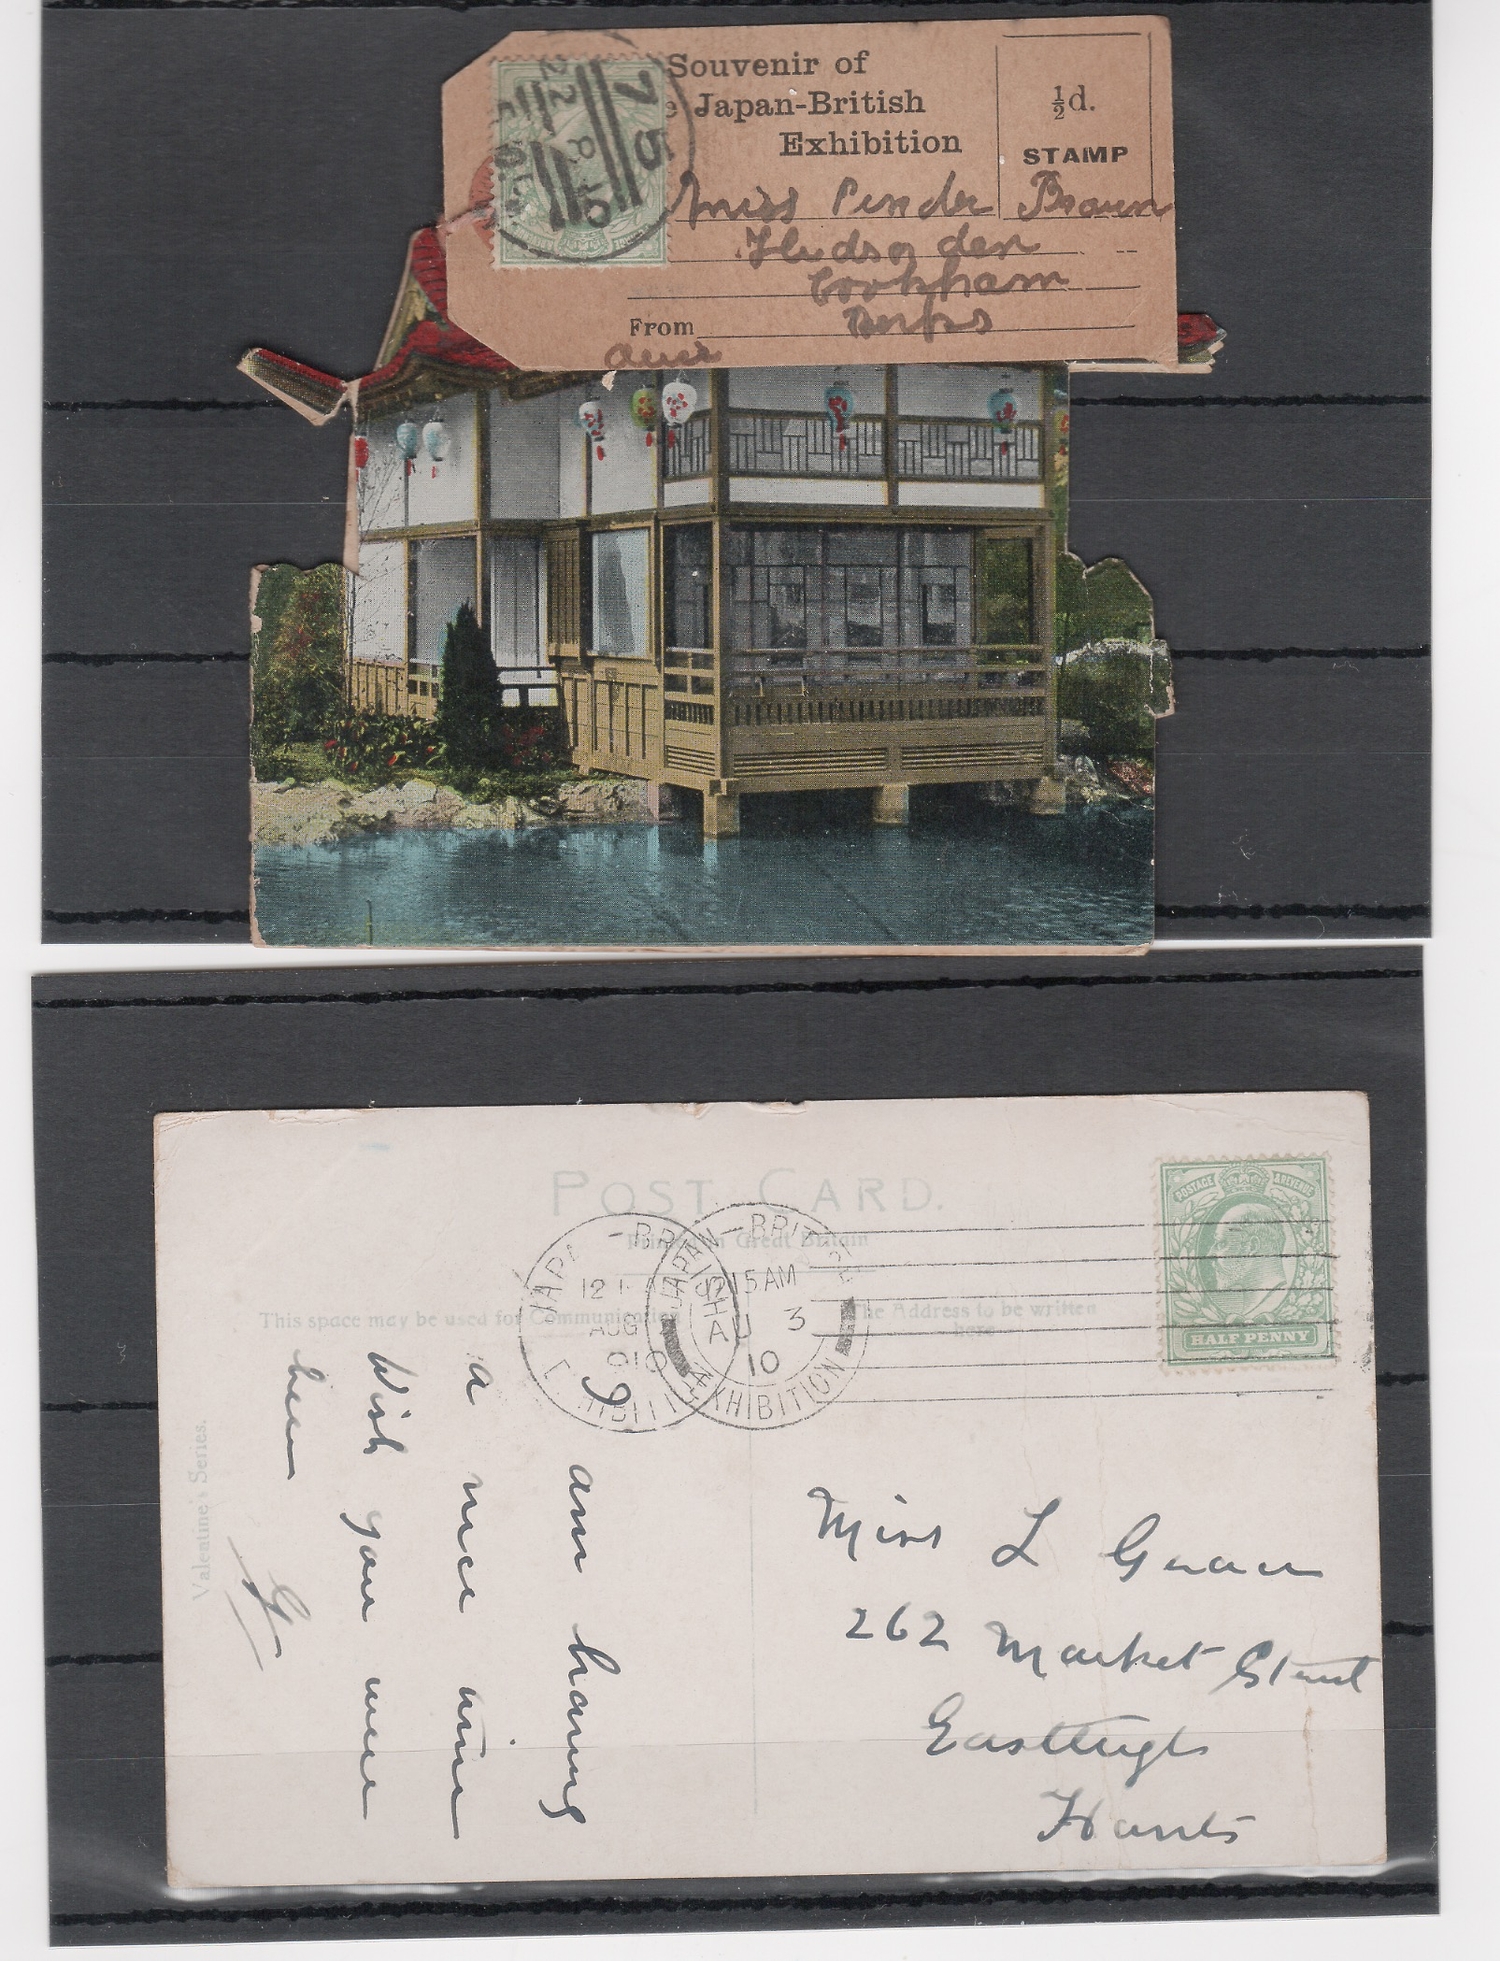 Souvenir of
e Japan-British
Exhibition
½d.
STAMP
Miss Pender Braun
Hudsonden
Cookham
From
POST CARD.
Printed in Great Britain
This space may be used for Communication
The Address to be written
here
JAPAN-BRITISH
EXHIBITION
1215AM
AU 3
10
AUG
POSTAGE
&REVENUE
HALF PENNY
Valentine's Series.
I am having
a nice time
Wish you were
here
G
Miss L
262 Market Street
Eastleigh
Hants